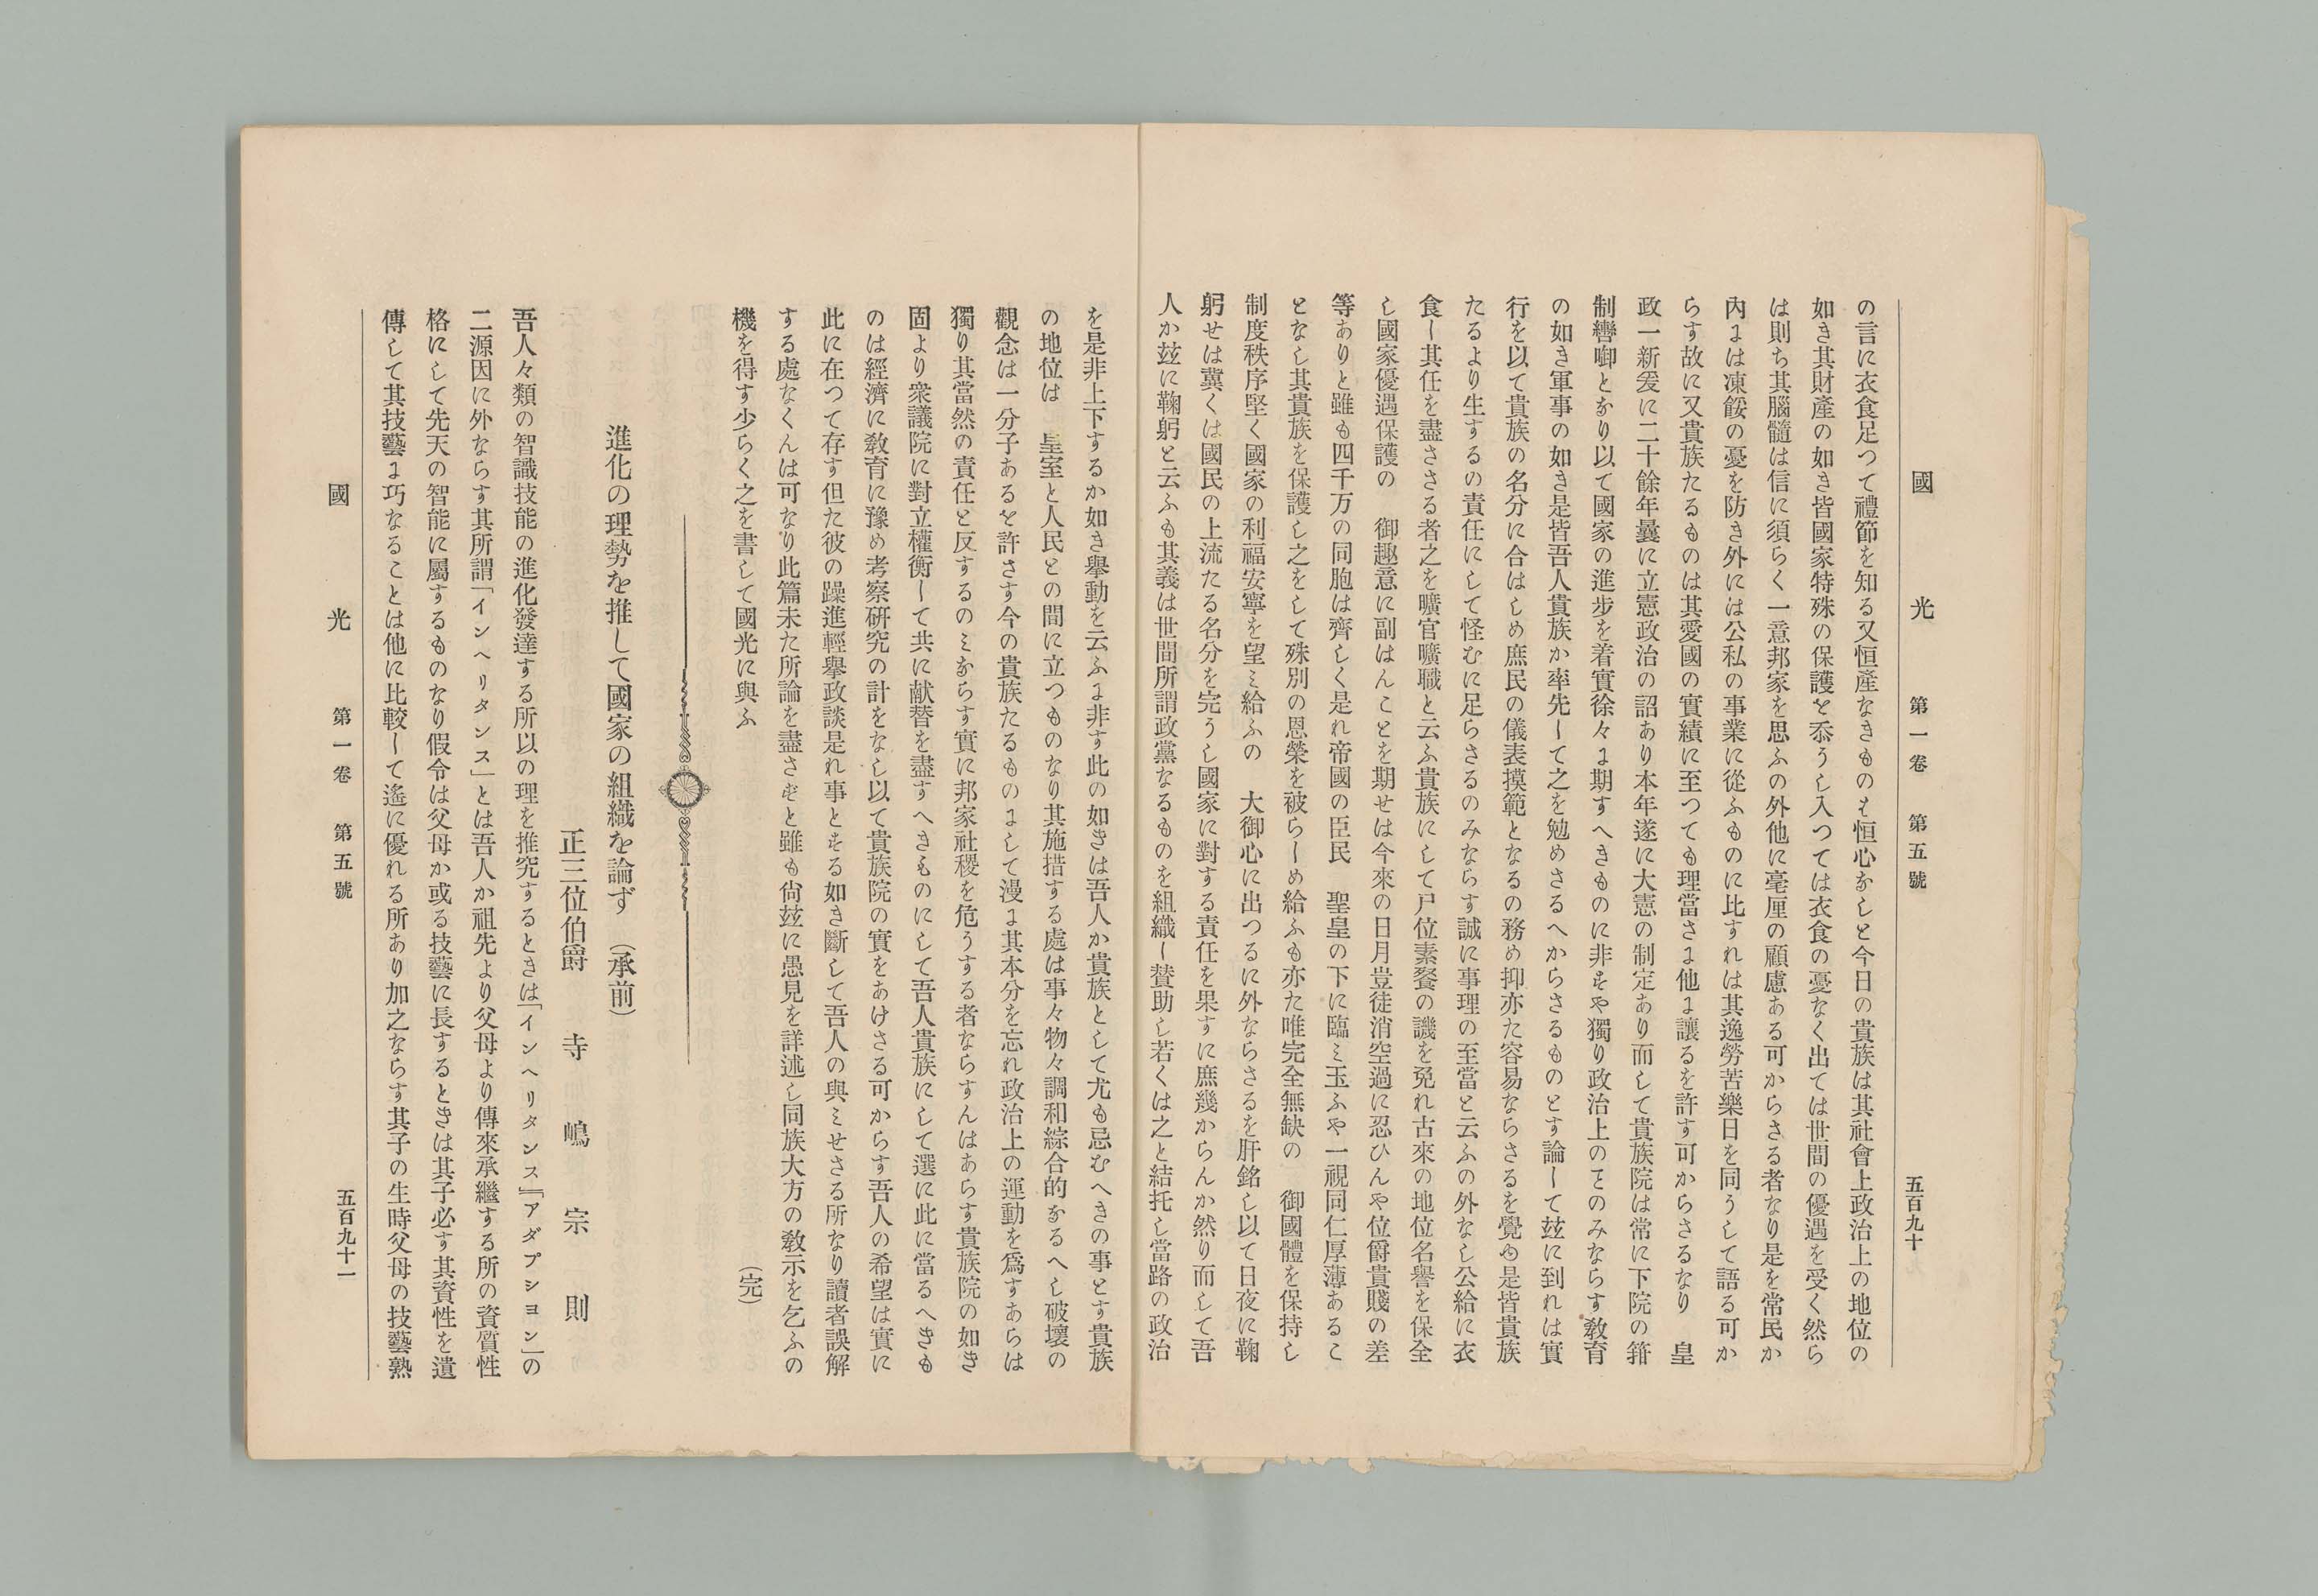 國光 第一卷 第五號 五百九十
の言に衣食足つて禮節を知る又恒產なきものも恒心なしと今日の貴族は其社會上政治上の地位の
如き其財產の如き皆國家特殊の保護を忝うし入つては衣食の憂なく出ては世間の優遇を受く然ら
は則ち其腦髓は信に須らく一意邦家を思ふの外他に毫厘の顧慮ある可からさる者なり是を常民か
內には凍餒の憂を防き外には公私の事業に從ふものに比すれは其逸勞苦樂日を同うして語る可か
らす故に又貴族たるものは其愛國の實績に至つても理當さに他に讓るを許す可からさるなり 皇
政一新爰に二十餘年曩に立憲政治の詔あり本年遂に大憲の制定あり而して貴族院は常に下院の箝
制轡啣となり以て國家の進步を着實徐々に期すへきものに非すや獨り政治上のとのみならす敎育
の如き軍事の如き是皆吾人貴族か率先して之を勉めさるへからさるものとす論して玆に到れは實
行を以て貴族の名分に合はしめ庶民の儀表摸範となるの務め抑亦た容易ならさるを覺ゆ是皆貴族
たるより生するの責任にして怪むに足らさるのみならす誠に事理の至當と云ふの外なし公給に衣
食し其任を盡ささる者之を曠官曠職と云ふ貴族にして尸位素餐の譏を免れ古來の地位名譽を保全
し國家優遇保護の 御趣意に副はんことを期せは今來の日月豈徒消空過に忍ひんや位爵貴賤の差
等ありと雖も四千万の同胞は齊しく是れ帝國の臣民 聖皇の下に臨ミ玉ふや一視同仁厚薄あるこ
となし其貴族を保護し之をして殊別の恩榮を被らしめ給ふも亦た唯完全無缺の 御國體を保持し
制度秩序堅く國家の利福安寧を望ミ給ふの 大御心に出つるに外ならさるを肝銘し以て日夜に鞠
躬せは冀くは國民の上流たる名分を完うし國家に對する責任を果すに庶幾からんか然り而して吾
人か玆に鞠躬と云ふも其義は世間所謂政黨なるものを組織し賛助し若くは之と結托し當路の政治
を是非上下するか如き擧動を云ふに非す此の如きは吾人か貴族として尤も忌むへきの事とす貴族
の地位は 皇室と人民との間に立つものなり其施措する處は事々物々調和綜合的なるへし破壞の
觀念は一分子あるを許さす今の貴族たるものにして漫に其本分を忘れ政治上の運動を爲すあらは
獨り其當然の責任と反するのミならす實に邦家社稷を危うする者ならすんはあらす貴族院の如き
固より衆議院に對立權衡して共に献替を盡すへきものにして吾人貴族にして選に此に當るへきも
のは經濟に敎育に豫め考察硏究の計をなし以て貴族院の實をあけさる可からす吾人の希望は實に
此に在つて存す但た彼の躁進輕擧政談是れ事とする如き斷して吾人の與ミせさる所なり讀者誤解
する處なくんは可なり此篇未た所論を盡さずと雖も尙玆に愚見を詳述し同族大方の敎示を乞ふの
機を得す少らく之を書して國光に與ふ (完)
進化の理勢を推して國家の組織を論ず (承前)
正三位伯爵 寺嶋宗則
吾人々類の智識技能の進化發達する所以の理を推究するときは「インヘリタンス」「アダプシヨン」の
二源因に外ならす其所謂「インヘリタンス」とは吾人か祖先より父母より傳來承繼する所の資質性
格にして先天の智能に屬するものなり假令は父母か或る技藝に長するときは其子必す其資性を遺
傳して其技藝に巧なることは他に比較して遙に優れる所あり加之ならす其子の生時父母の技藝熟
國光 第一卷 第五號 五百九十一